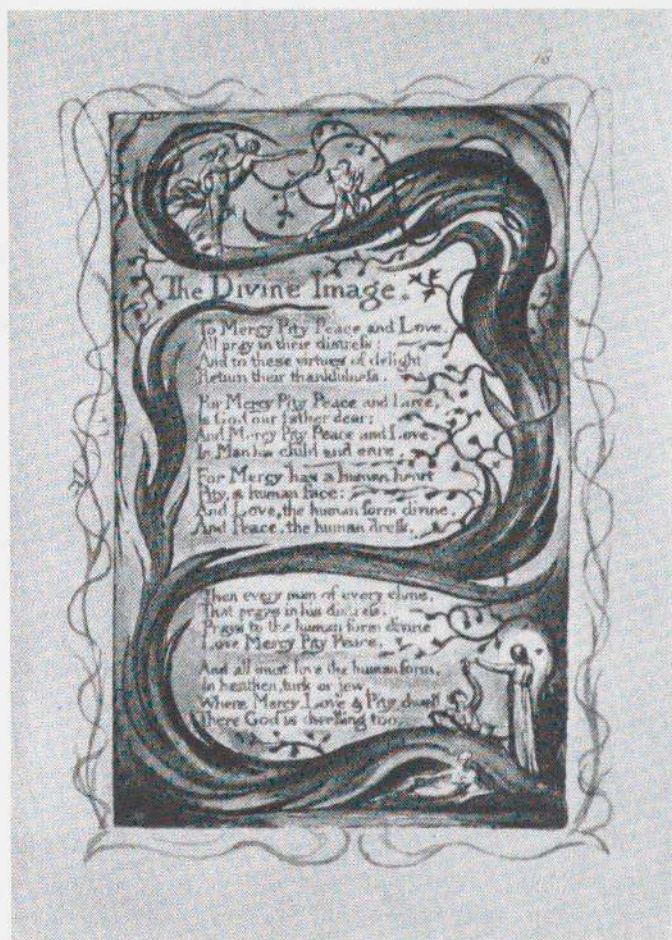 18
The Divine Image.
To Mercy Pity Peace and Love,
All pray in their distress:
And to these virtues of delight
Return their thankfulness.
For Mercy Pity Peace and Love,
Is God our father dear:
And Mercy Pity Peace and Love,
Is Man his child and care.
For Mercy has a human heart
Pity, a human face:
And Love, the human form divine,
And Peace, the human dress.
Then every man of every clime,
That prays in his distress,
Prays to the human form divine
Love Mercy Pity Peace,
And all must love the human form,
In heathen, turk or jew.
Where Mercy, Love & Pity dwell,
There God is dwelling too